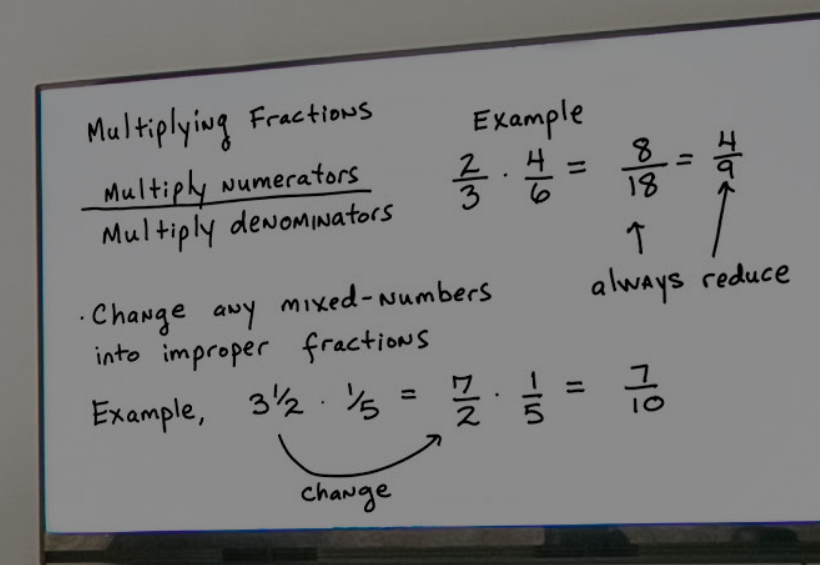 Multiplying Fractions
Multiply Numerators
Multiply denominators
Example
2/3 · 4/6 = 8/18 = 4/9
always reduce
· Change any mixed-numbers
into improper fractions
Example, 3 1/2 · 1/5 = 7/2 · 1/5 = 7/10
change